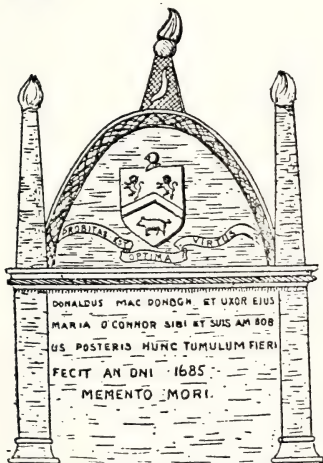 PROBITAS EST OPTIMA VIRTUS
DONALDUS MAC DONBGH ET UXOR EJUS
MARIA O'CONNOR SIBI ET SUIS AM BOB
US POSTERIS HUNC TUMULUM FIERI
FECIT AN DNI 1685
MEMENTO MORI.